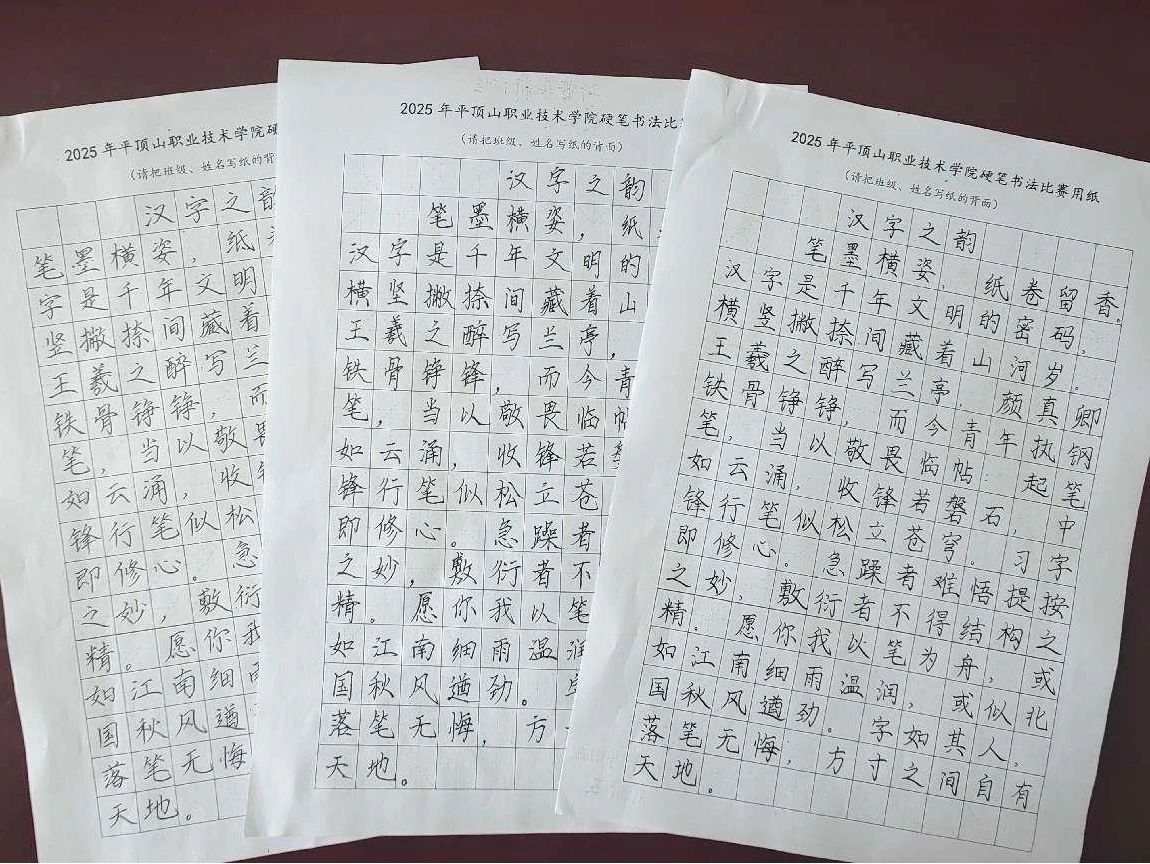 2025 年平顶山职业技术学院硬
(请把班级、姓名写纸的背
汉字之韵
笔墨横姿，纸
字是千年文明
竖撇捺间藏着
王羲之醉写兰
铁骨铮铮，而
笔，当以敬畏
如云涌，收
锋行笔似松
即修心。急
之妙，敷衍
精。愿你我
如江南细雨
国秋风遒
落笔无悔
天地。
2025 年平顶山职业技术学院硬笔书法比
(请把班级、姓名写纸的背面)
汉字之韵
笔墨横姿，纸
汉字是千年文明的
横竖撇捺间藏着山
王羲之醉写兰亭，
铁骨铮锋，而今青
笔，当以敬畏临帖
如云涌，收锋若
锋行笔似松立苍
即修心。急躁者
之妙，敷衍者不
精。愿你我以笔
如江南细雨温润
国秋风遒劲。字
落笔无悔，方
天地。
2025 年平顶山职业技术学院硬笔书法比赛用纸
(请把班级、姓名写纸的背面)
汉字之韵
笔墨横姿，纸卷留香。
汉字是千年文明的密码，
横竖撇捺间藏着山河岁。
王羲之醉写兰亭，颜真卿
铁骨铮铮，而今青年执钢
笔，当以敬畏临帖：起笔
如云涌，收锋若磐石，中
锋行笔似松立苍穹。习字
即修心。急躁者难悟提按
之妙，敷衍者不得结构之
精．愿你我以笔为舟，或
如江南细雨温润，或似北
国秋风遒劲。字如其人，
落笔无悔，方寸之间自有
天地．